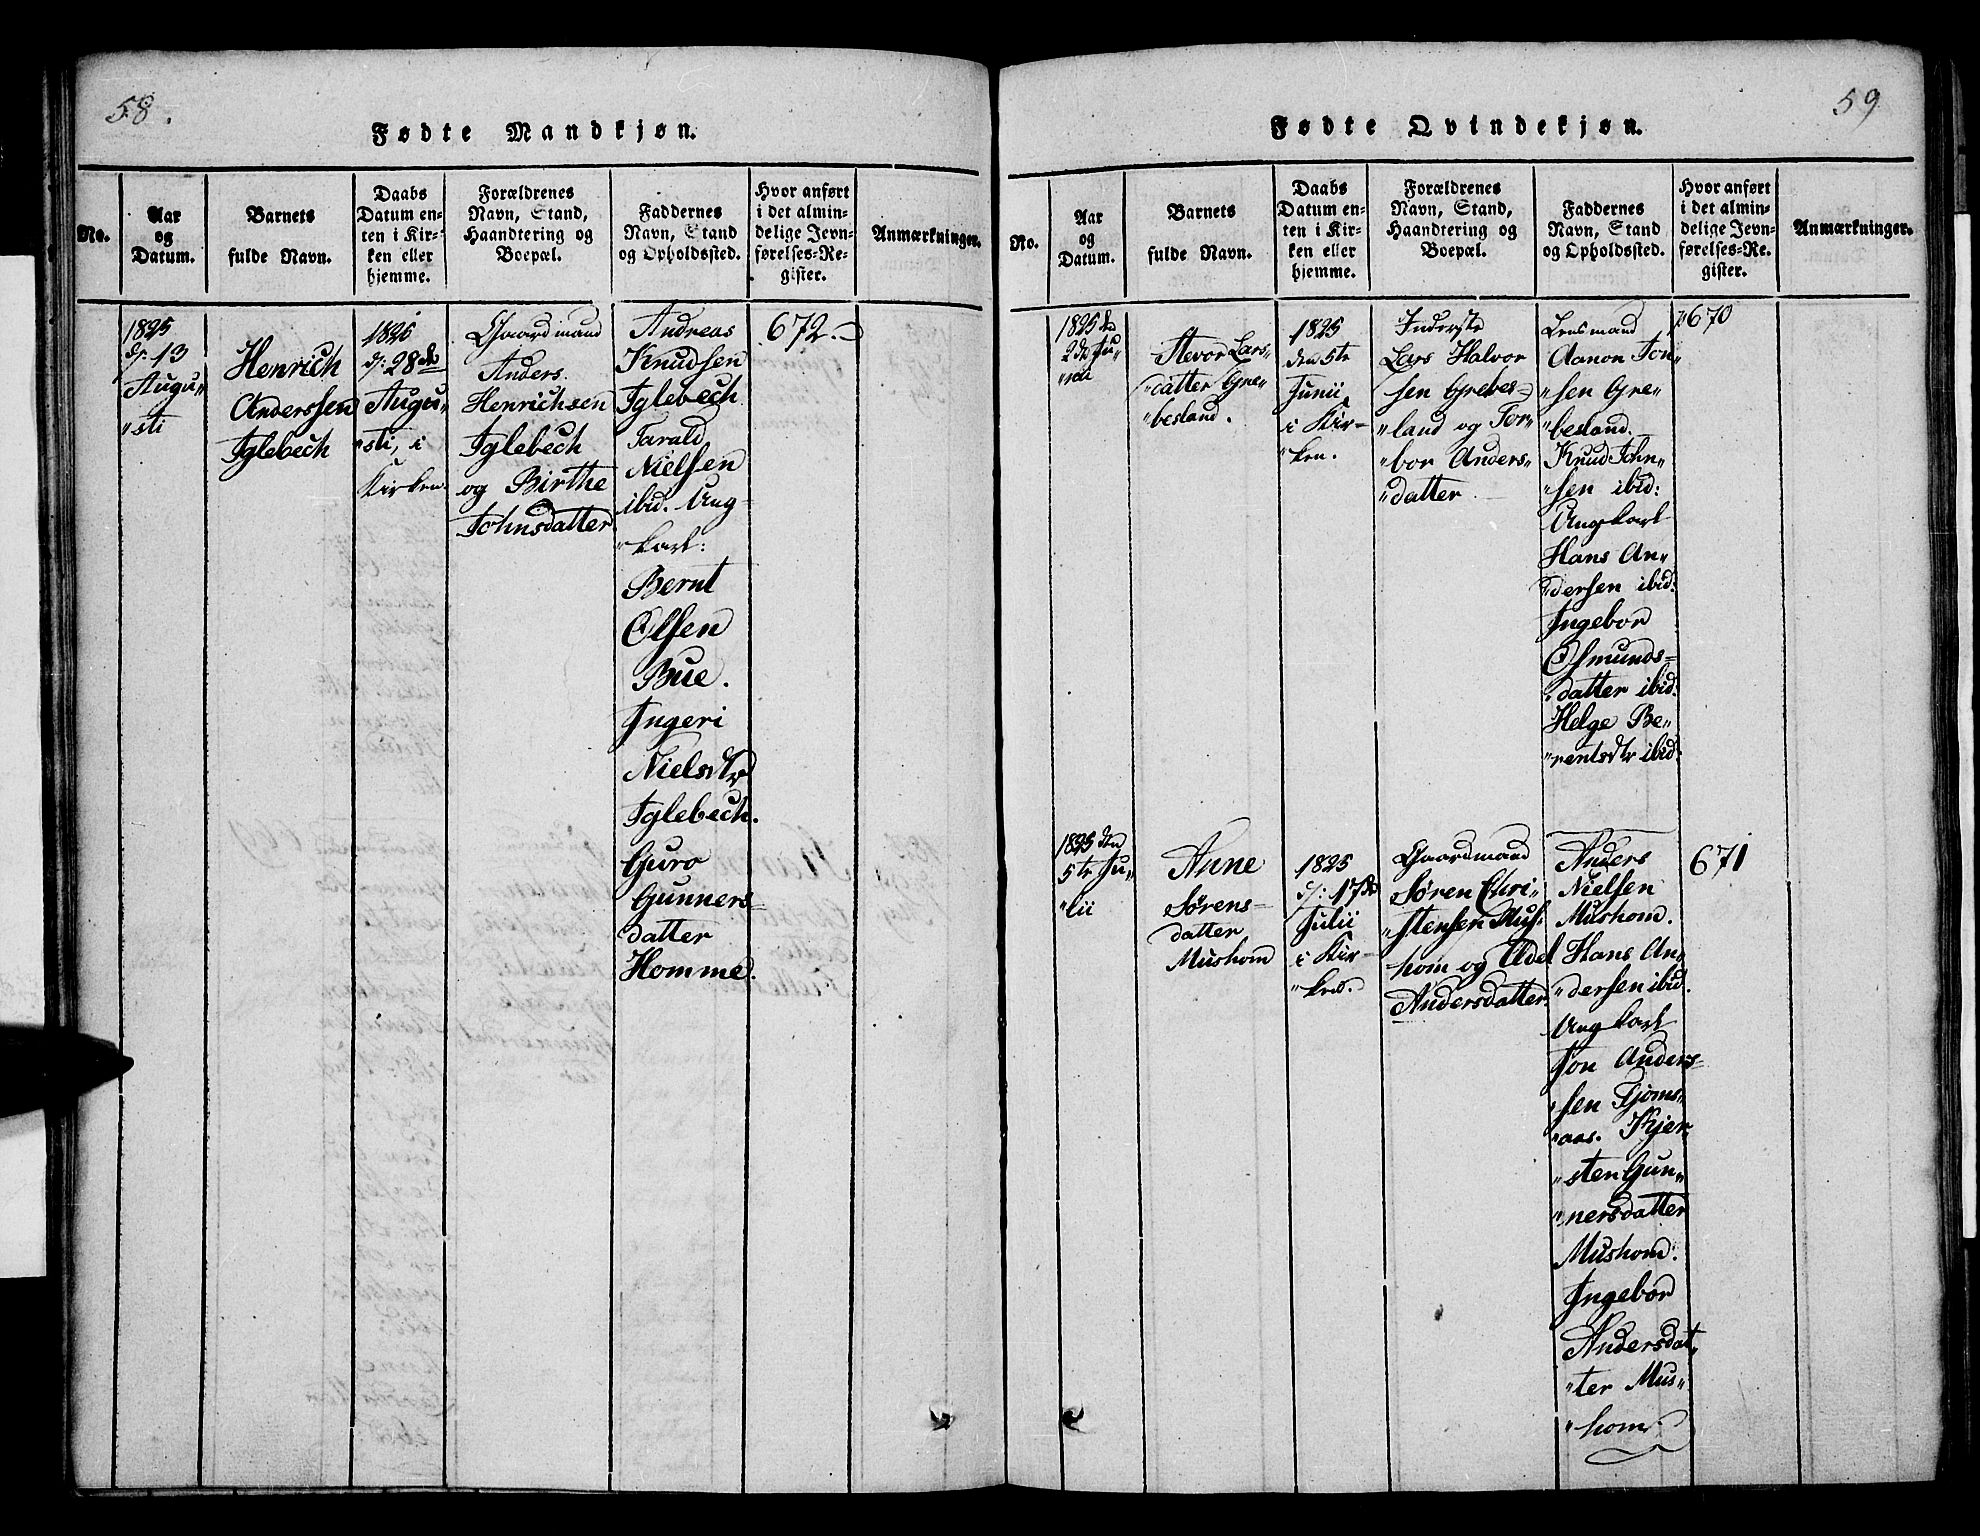 58.
Fødte Mandkjøn.
No.
Aar
og
Datum.
Barnets
fulde Navn.
Daabs
Datum en-
ten i Kir-
ken eller
hjemme.
Forældrenes
Navn, Stand,
Haandtering og
Boepæl.
Faddernes
Navn, Stand
og Opholdssted.
Hvor anført
i det almin-
delige Jevn-
førelses-Re-
gister.
Anmærkninger.
1825
d: 13
Augu„
„sti
Henrich
Anderssen
Iglebech
1825
d: 28de
Augu„
„sti, i
Kirken.
Gaardmand
Anders
Henrichsen
Iglebech
og Birthe
Johnsdatter
Andreas
Knudsen
Iglebech
Tarald
Nielsen
ibid. Ung-
„karl:
Bernt
Olsen
Bue.
Ingeri
Nielsdtr
Iglebech.
Guro
Gunners-
datter
Homme.
672.
59
Fødte Qvindekjøn.
No.
Aar
og
Datum.
Barnets
fulde Navn.
Daabs
Datum en-
ten i Kir-
ken eller
hjemme.
Forældrenes
Navn, Stand,
Haandtering og
Boepæl.
Faddernes
Navn, Stand
og Opholdssted.
Hvor anført
i det almin-
delige Jevn-
førelses-Re-
gister.
Anmærkninger.
1825 den
2de Ju„
„nii
Stevor Lars„
„datter Gre„
„besland.
1825
den 5te
Junii
i Kir-
„ken.
Inderste
Lars Halvor
sen Grebes=
„land og Tor„
„bor Anders„
„datter
Lensmand
Aanon Jon„
„sen Gre„
„besland.
Knud John„
„sen ibid:
Ungkarl
Hans An„
„dersen ibid:
Ingebor
Osmunds=
„datter ibid:
Helge Be„
„rentsdtr ibid.
670
1825 den
5te Ju„
„lii
Anne
Sørens-
datter
Mushom
1825
d: 17de
Julii
i Kir-
„ken.
Gaardmand
Søren Chri„
„stensen Mus„
hom og Eldel
Andersdatter.
Anders
Nielsen
Mushom.
Hans An„
„dersen ibid.
Ungkarl
Jon Anders=
„sen Tjoms„
„aas. Kjer„
„sten Gun„
„nersdatter
Mushom.
Ingebor
Andersdat„
„ter Mus„
„hom.
671